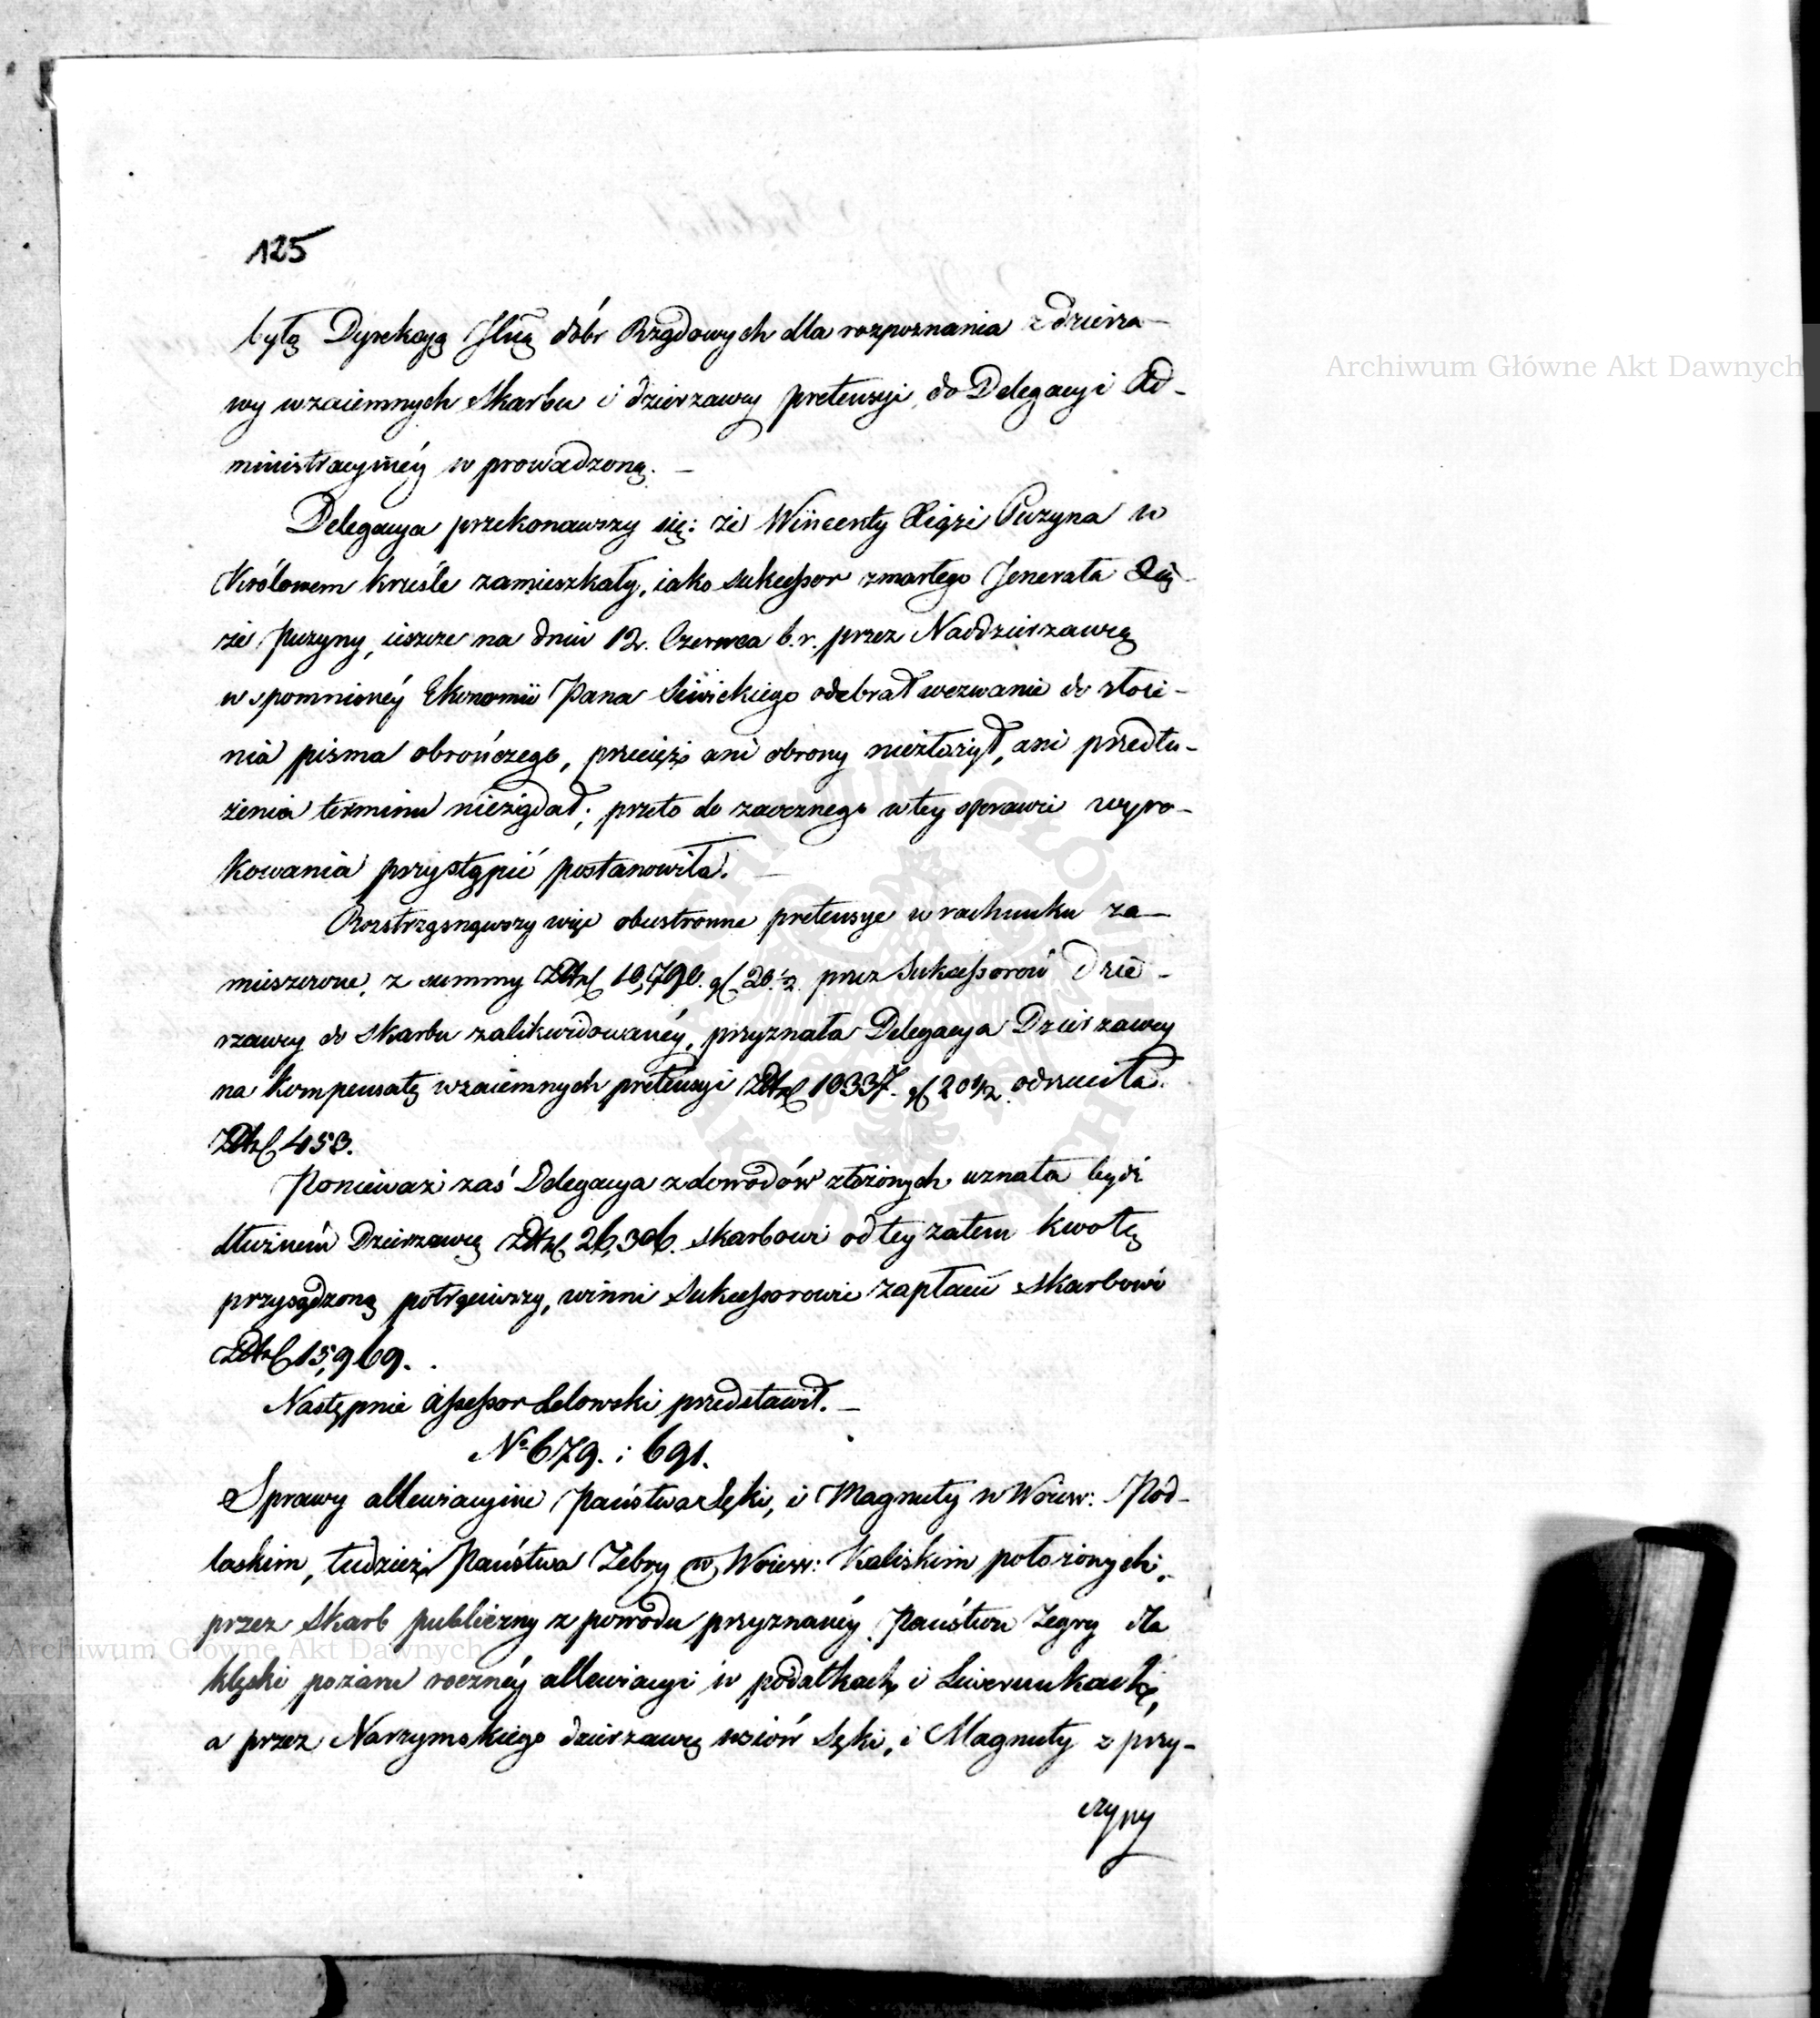 125
byłą Dyrekcyą Jlną dóbr Rządowych dla rozpoznania z dzierza-
wy wzaiemnych Skarbu i dzierzawcy pretensyi do Delegacyi Ad-
ministracyinéy wprowadzoną. -
Delegacya przekonawszy się: że Wincenty Xiąże Puzyna w
Królowem krześle zamieszkały, iako Sukcessor zmarłego Jenerała Xię-
cia Puzyny, ieszcze na dniu 12. Czerwca b. r. przez Naddzierzawcę
wspomnionéy Ekonomii Pana odebrał wezwanie do złoże-
nia pisma obrończego, przecież ani obrony niezłożył, ani przedłu-
żenia terminu nieżądał; przeto do zaocznego w tey sprawie wyro-
kowania przystąpić postanowiła. -
Rozstrząsnąwszy więc obustronne pretensye w rachunku za-
mieszczone, z summy Złtpl 10,790. gl 20 ½ przez Sukcessorów Dzie-
rzawcy do Skarbu zalikwidowanéy, przyznała Delegacya Dzierzawcy
na kompensatę wzaiemnych pretensyi Złtpl 10337. gl 20 ½. odrzuciła
Złtpl 453.
Ponieważ zaś Delegacya z dowodów złożonych uznała bydź
dłużném Dzierzawcę Złtpl 26,306. Skarbowi od tey zatem kwotę
przysądzoną potrąciwszy, winni Sukcessorowie zapłacić Skarbowi
Złtpl 15,969.
Następnie Assessor Lelowski przedstawił. -
No 679. i 691.
Sprawy allewiacyine Państwa Łęki, i Magnuty w Woiew: Pod-
laskim, tudzież Państwa Zebry w Woiew: Kaliskim położonych,
przez Skarb publiczny z powodu przyznanéy Państwu Zegry dla
klęski pożaru rocznéy allewiacyi w podatkach i Liwerunkach,
a przez Narzymskiego dzierzawcę wsiów Łęki, i Magnuty z przy-
czyny
Archiwum Główne Akt Dawnych
Archiwum Główne Akt Dawnych